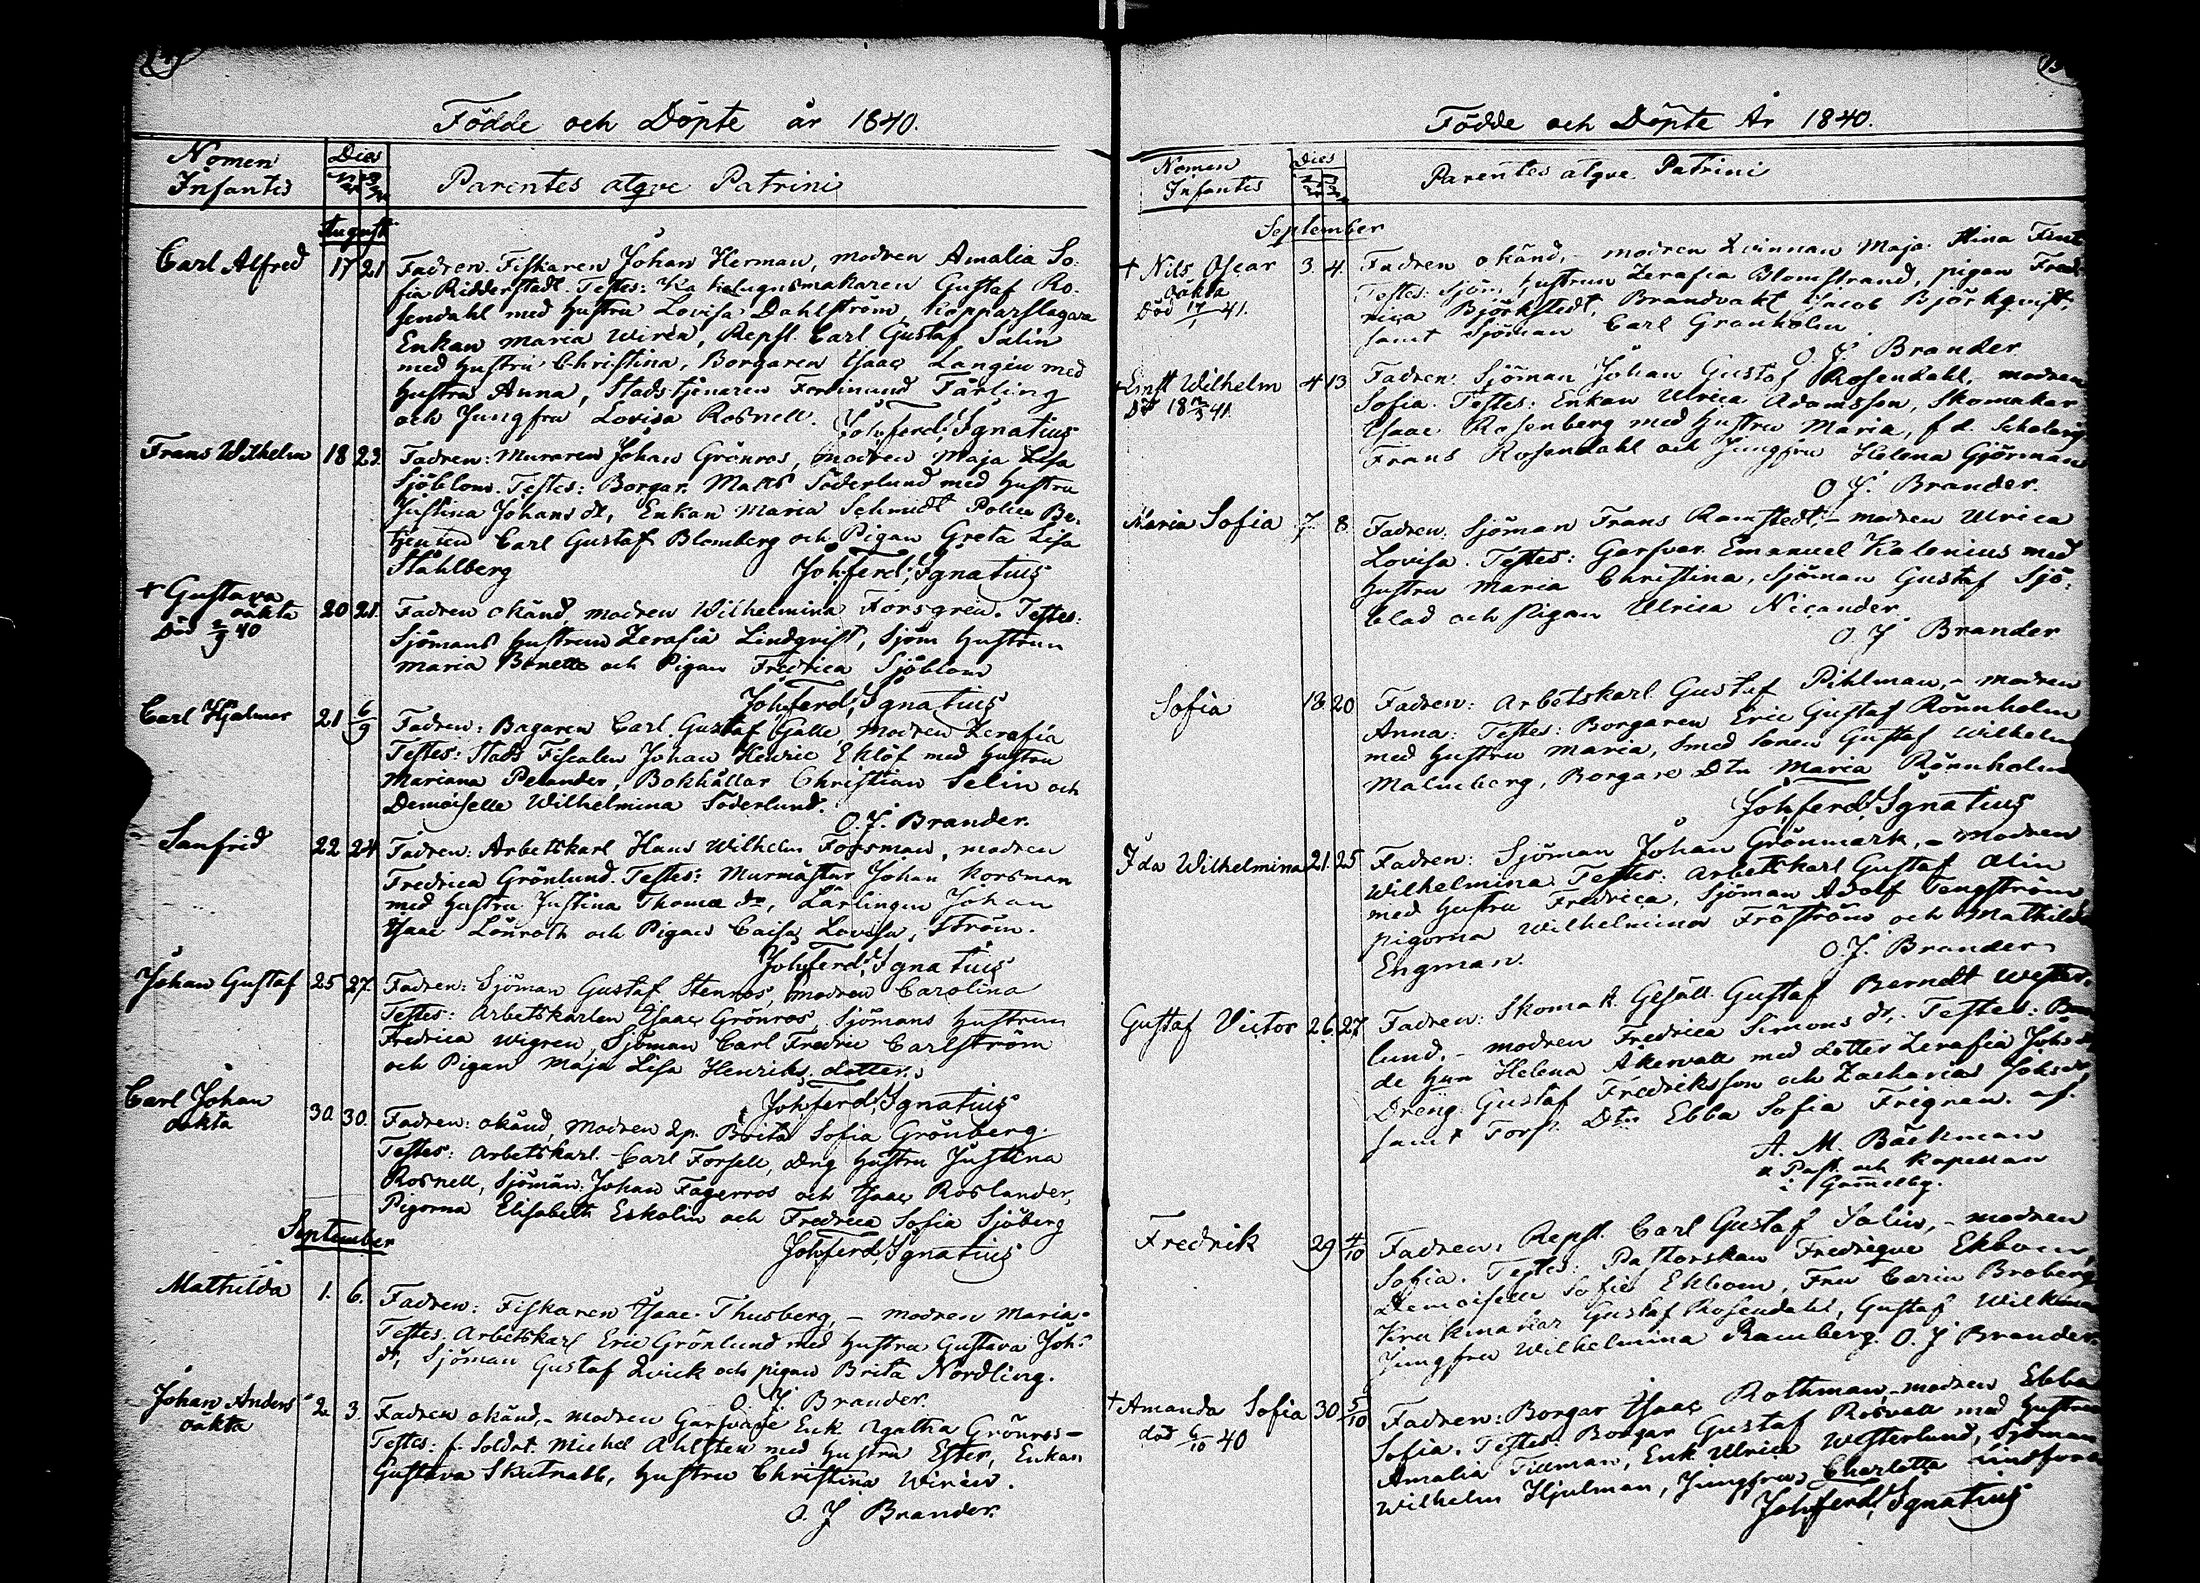 Födde och Döpte år 1840.
Nomen Infantis
Dies
Parentes atqve Patrini
August
Carl Alfred 17 21 Fadren: Fiskaren Johan Herman, modren Amalia So-
fia Ridderstadt. Testes: Kakelugnsmakaren Gustaf Ro-
sendahl med hustru Lovisa Dahlström, Kopparslagare
Enkan Maria Wirén, Repsl. Carl Gustaf Salin
med hustru Christina, Borgaren Isaac Langin med
hustru Anna, Stadstjenaren Ferdinand Tärling
och Jungfru Lovisa Rosnell. Joh. Ferd. Ignatius
Frans Wilhelm 18 23. Fadren: Muraren Johan Grönros, modren Maja Lisa
Sjöblom. Testes: Borgar. Matts Söderlund med hustru
Justina Johans dr, Enkan Maria Schmidt Police Be-
tjenten Carl Gustaf Blomberg och Pigan Greta Lisa
Ståhlberg Joh. Ferd. Ignatius
+ Gustava 20 21. Fadren okänd, modren Wilhelmina Forsgren. Testes:
oäkta
Död 2/9 40
Sjömans hustrun Serafia Lindqvist, Sjöm hustrun
Maria Bonette och Pigan Fredrica Sjöblom
Joh. Ferd. Ignatius
Carl Hjalmar 21 6/9 Fadren: Bagaren Carl Gustaf Galle, Modren Serafia
Testes: Stads Fiscalen Johan Henric Eklöf med hustru
Mariana Pelander, Bokhållar Christian Selin och
Demoiselle Wilhelmina Söderlund.
O. J. Brander.
Sanfrid 22 24 Fadren: Arbetskarl Hans Wilhelm Forsman, modren
Fredrica Grönlund. Testes: Murmästar Johan Korsman
med hustru Justina Thomæ dr, Lärlingen Johan
Isaac Lönroth och Pigan Caisa Lovisa Ström.
Joh. Ferd. Ignatius
Johan Gustaf 25 27. Fadren: Sjöman Gustaf Stenros, modren Carolina
Testes: Arbetskarlen Isaac Grönros, Sjömans hustrun
Fredrica Wigren, Sjöman Carl Fredric Carlström
och Pigan Maja Lisa Henriks dotter.
Joh. Ferd. Ignatius
Carl Johan 30. 30. Fadren: okänd, Modren Brita Sofia Grönberg.
oäkta
Testes: Arbetskarl Carl Forsell, Drg hustru Justina
Rosnell, Sjömän: Johan Fagerros och Isaac Roslander,
Pigorna Elisabeth Eskolin och Fredrica Sofia Sjöberg
Joh. Ferd. Ignatius
September
Mathilda 1. 6. Fadren: Fiskaren Isaac Thusberg, – modren Maria.
Testes. Arbetskarl Eric Grönlund med hustru Gustava Joh:
dr, Sjöman Gustaf Qvick och pigan Brita Nordling.
O. J. Brander.
Johan Anders 2. 3. Fadren okänd, – modren Garfvare Enk. Agatha Grönros –
oäkta
Testes: f. Soldat. Michel Ahlsten med hustru Ester, Enkan
Gustava Skutnabb, hustru Christina Wirén.
O. J Brander.
Födde och Döpte År 1840.
Nomen Infantis
Dies
Parentes atqve Patrini
September
+ Nils Oscar 3. 4. Fadren okänd, – modren Qvinnan Maja Stina
oäkta
Död 17/1 41.
Testes: Sjöm hustrun Serafia Blomstrand, pigan Fred-
rica Björkstedt, Brandvakt Jacob Björkqvist,
samt Sjöman Carl Granholm
O. J. Brander
+ Ernst Wilhelm 4 13 Fadren: Sjöman Johan Gustaf Rosendahl, modren
Sofia. Testes: Enkan Ulrica Adamsson, Skomakar
Isaac Rosenberg med hustru Maria, f d.
Frans Rosendahl och Jungfru Helena Gjörman
O. J. Brander.
Maria Sofia 7. 8. Fadren: Sjöman Frans Ramstedt, – modren Ulrica
Lovisa. Testes: Garfvar. Emanuel Kalenius med
hustru Maria Christina, Sjöman Gustaf Sjö-
blad och Pigan Ulrica Nicander
O. J Brander
Sofia 13 20 Fadren: Arbetskarl Gustaf Pihlman, – modren
Anna: Testes: Borgaren Eric Gustaf Rönnholm
med hustru Maria, Smed Gustaf Wilhelm
Malmberg, Borgare Dtn Maria Rönnholm
Joh. Ferd. Ignatius
Ida Wilhelmina 21. 25 Fadren: Sjöman Johan Grönmark, – modren
Wilhelmina. Testes: Arbetskarl Gustaf Olin
med hustru Fredrica, Sjöman Adolf Tengström
pigorna Wilhelmina Fröström och Mathilda
Engman. O. J. Brander
Gustaf Victor 26. 27 Fadren: Skomak. Gesäll Gustaf Berndt Wester-
lund, – modren Fredrica Simons dr. Testes:
de hun Helena Åkervall med dotter Serafia Johs dr,
Dreng: Gustaf Fredriksson och Zacharias Johsson,
samt Torp. Dtn Ebba Sofia Frigren. af
A. M. Bäckman
v Past. och Kapellan
i Gam̄elby.
Fredrik 29 4/10 Fadren: Repsl. Carl Gustaf Salin, – modren
Sofia. Testes: Pastorskan Fredriqve Ekbom,
Demoiselle Sofie Ekbom, Fru Carin Broberg
Krukmakar Gustaf Rosendahl, Gustaf
Jungfru Wilhelmina Ramberg. O. J Brander.
+ Amanda Sofia 30 5/10 Fadren: Borgar Isaac Rothman, modren Ebba
död 6/10 40
Sofia. Testes: Borgar Gustaf Rosvall med hustru
Amalia Tillman, Enk Ulrica Westerlund, Sjöman
Wilhelm Hjulman, Jungfru Charlotta Lindfors
Joh. Ferd. Ignatius